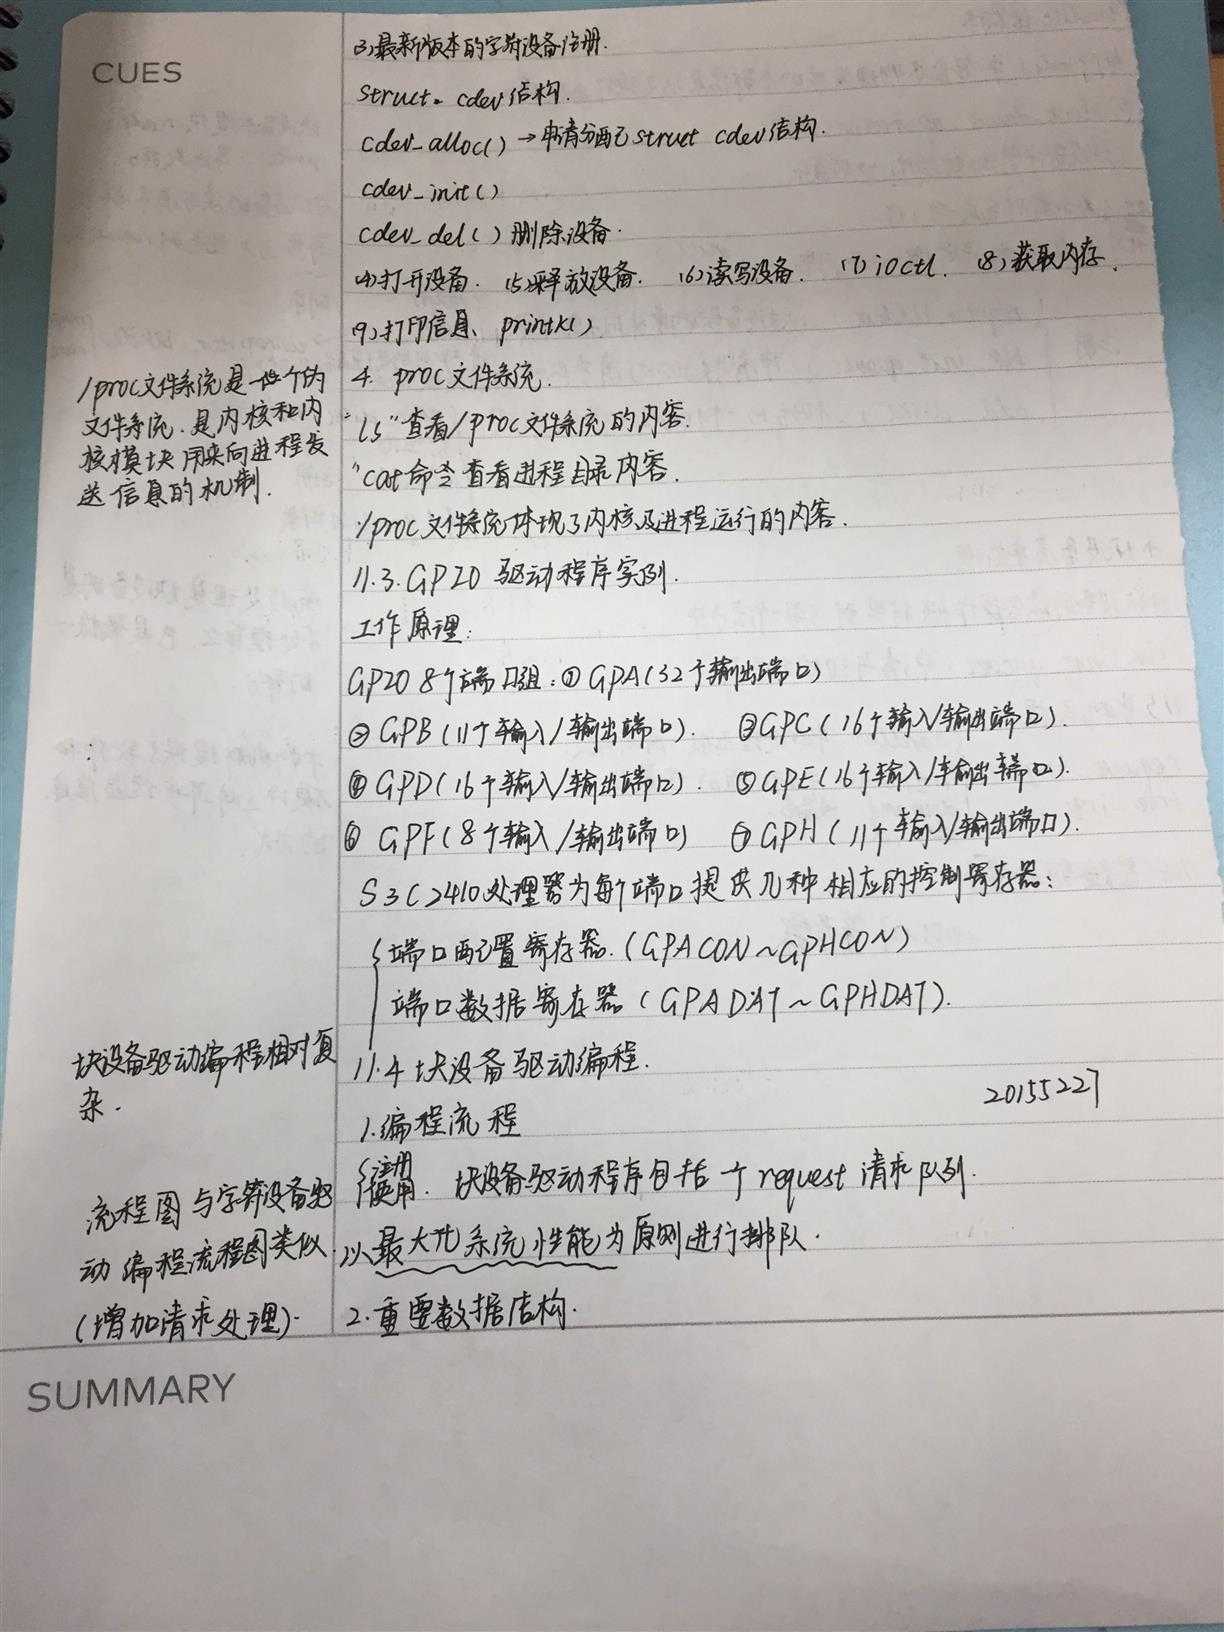 CUES
3)最新版本的字符设备注册.
struct. cdev结构.
cdev_alloc() → 申请分配已struct cdev结构.
cdev_init()
cdev_del() 删除设备.
(4)打开设备. (5)释放设备. (6)读写设备. (7) ioctl. (8)获取内存.
(9)打印信息、printk()
4. proc文件系统.
"ls"查看/proc文件系统的内容.
"cat命令查看进程目录内容.
·/proc文件系统体现了内核及进程运行的内容.
/proc文件系统是一个伪
文件系统.是内核和内
核模块用来向进程发
送信息的机制.
11.3.GPIO 驱动程序实例.
工作原理:
GPIO 8个端口组:① GPA(32个输出端口)
② GPB(11个输入/输出端口). ③GPC(16个输入/输出端口).
④ GPD(16个输入/输出端口). ⑤GPE(16个输入/输出端口).
⑥ GPF(8个输入/输出端口) ⑦GPH(11个输入/输出端口).
S3C2410处理器为每个端口提供几种相应的控制寄存器:
端口配置寄存器.(GPACON~GPHCON)
端口数据寄存器(GPADAT~GPHDAT).
11.4 块设备驱动编程.
块设备驱动编程相对复
杂.
20155227
1.编程流程
注册
使用. 块设备驱动程序包括一个request请求队列.
以最大化系统性能为原则进行排队.
流程图与字符设备驱
动编程流程图类似.
(增加请求处理).
2.重要数据结构.
SUMMARY